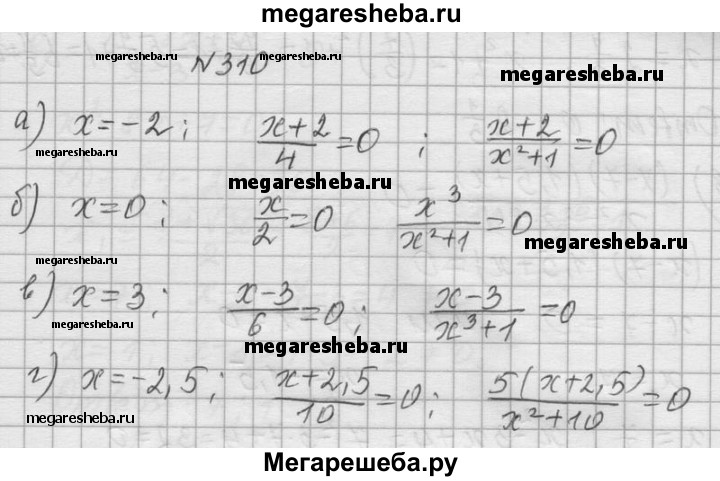 megaresheba.ru
N 310
megaresheba.ru
megaresheba.ru
а) x = -2; (x+2)/4 = 0; (x+2)/(x²+1) = 0
megaresheba.ru
megaresheba.ru
б) x = 0; x/2 = 0 x³/(x²+1) = 0
megaresheba.ru
megaresheba.ru
в) x = 3; (x-3)/6 = 0; (x-3)/(x³+1) = 0
megaresheba.ru
megaresheba.ru
г) x = -2,5; (x+2,5)/10 = 0; 5(x+2,5)/(x²+10) = 0
megaresheba.ru
megaresheba.ru
Мегарешеба.ру